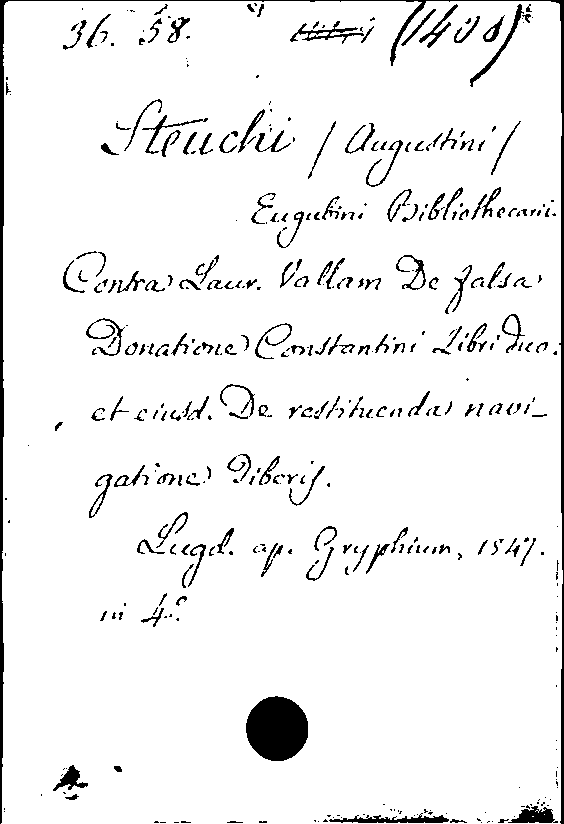 36. 58. (1408)
Steuchi / Augustini /
Eugubini Bibliothecarii.
Contra Laur. Vallam De falsa
Donatione Constantini Libri duo:
et eiusd. De restituenda navi-
gatione Tiberis.
Lugd. ap. Gryphium, 1547.
in 4.º